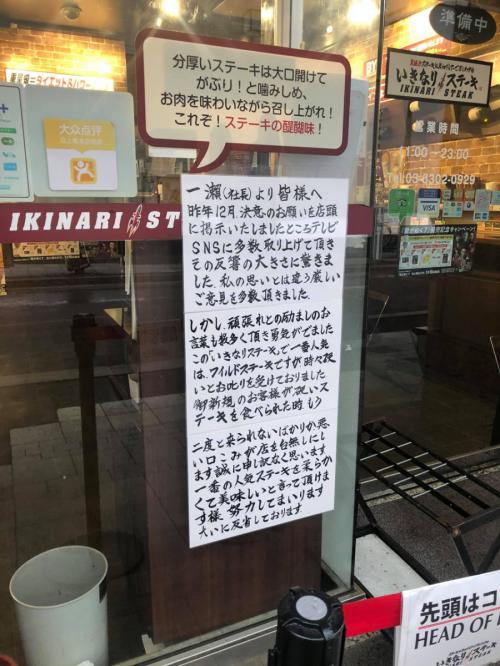 準備中
分厚いステーキは大口開けて
がぶり!と噛みしめ、
お肉を味わいながら召し上がれ!
これぞ!ステーキの醍醐味!
いきなりステーキ
IKINARI STEAK
営業時間
11:00~23:00
Tel.03-6302-0929
大众点评
IKINARI ST
一瀬(社長)より皆様へ
昨年12月、決意のお願いを店頭
に掲示いたしましたところテレビ
SNSに多数取り上げて頂き
その反響の大きさに驚きま
した。私の思いとは違う厳しい
ご意見を多数、頂きました。
しかし、頑張れとの励ましのお
言葉も数多く頂き勇気がでました
この「いきなりステーキ」で一番人気
は、ワイルドステーキですが時々硬
いとお叱りを受けておりました
御新規のお客様が硬いス
テーキを食べられた時、もう
二度と来られないばかりか悪
い口こみが店を台無しにし
ます誠に申し訳なく思います
一番の人気ステーキを柔らか
くて美味しいと言って頂けま
す様、努力してまいります
大いに反省しております
先頭はコ
HEAD OF
いきなりステーキ